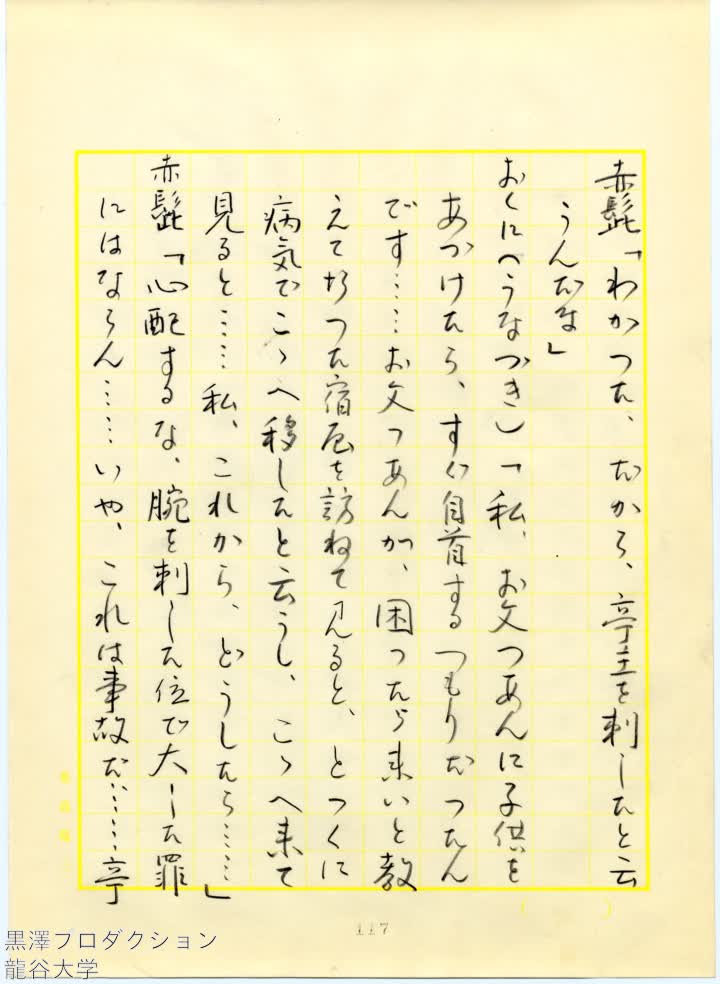 赤髭「わかった、だから、亭主を刺したと云
うんだな」
おくに（うなづき）「私、お文つあんに子供を
あづけたら、すぐ自首するつもりだつたん
です……お文つあんが、困つたら来いと教
えて行つた宿屋を訪ねて見ると、とつくに
病気でこゝへ移したと云うし、こゝへ来て
見ると……私、これから、どうしたら……」
赤髭「心配するな、腕を刺した位で大した罪
にはならん……いや、これは事故だ……亭
117
黒澤プロダクション
龍谷大学